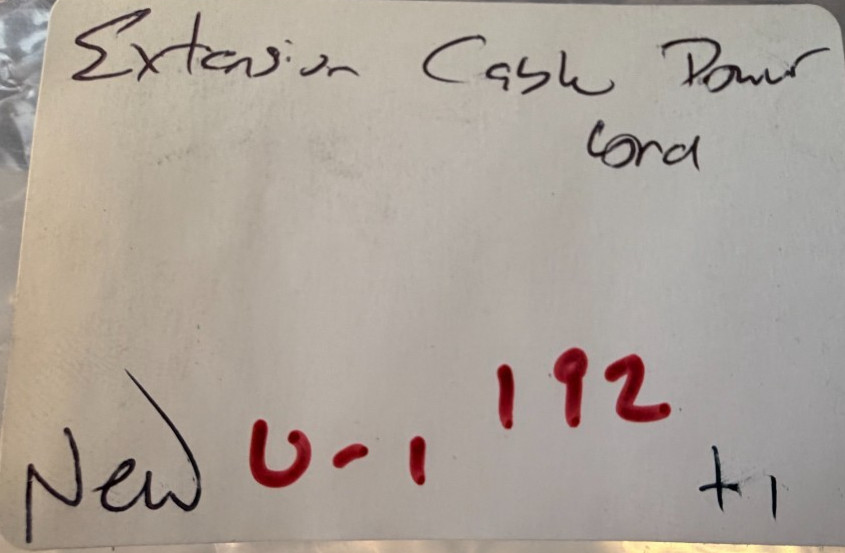 Extension Cable Power
Cord
New U-1 192 +1